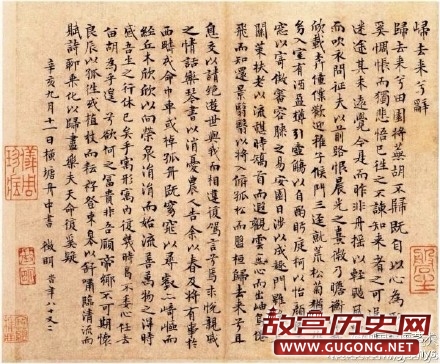 歸去來兮辭
歸去來兮田園將蕪胡不歸既自以心為形
役奚惆悵而獨悲悟已往之不諫知來者之可追實
迷途其未遠覺今是而昨非舟搖搖以輕颺風飄飄
而吹衣問征夫以前路恨晨光之熹微乃瞻衡宇載
欣載奔僮僕歡迎稚子候門三逕就荒松菊猶存攜
幼入室有酒盈樽引壺觴以自酌眄庭柯以怡顏倚南
窗以寄傲審容膝之易安園日涉以成趣門雖設而常
關策扶老以流憩時矯首而遐觀雲無心而出岫鳥倦
飛而知還景翳翳以將入撫孤松而盤桓歸去來兮且
息交以請絕遊世與我而相遺復駕言兮焉求悅親戚
之情話樂琴書以消憂農人告余以春及將有事於
西疇或命巾車或棹孤舟既窈窕以尋壑亦崎嶇而
經丘木欣欣以向榮泉涓涓而始流善萬物之得時
感吾生之行休已矣乎寓形宇內復幾時曷不委心任去
留胡為乎遑遑兮欲何之富貴非吾願帝鄉不可期懷
良辰以孤往或植杖而耘耔登東皋以舒嘯臨清流而
賦詩聊乘化以歸盡樂夫天命復奚疑
辛亥九月十一日橫塘舟中書 徵明 時年八十又二
故宫历史网
WWW.GUGONG.NET